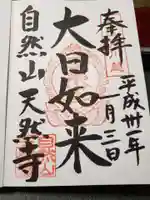 奉拝
平成卅一年
月三日
大日如来
自然山天然寺